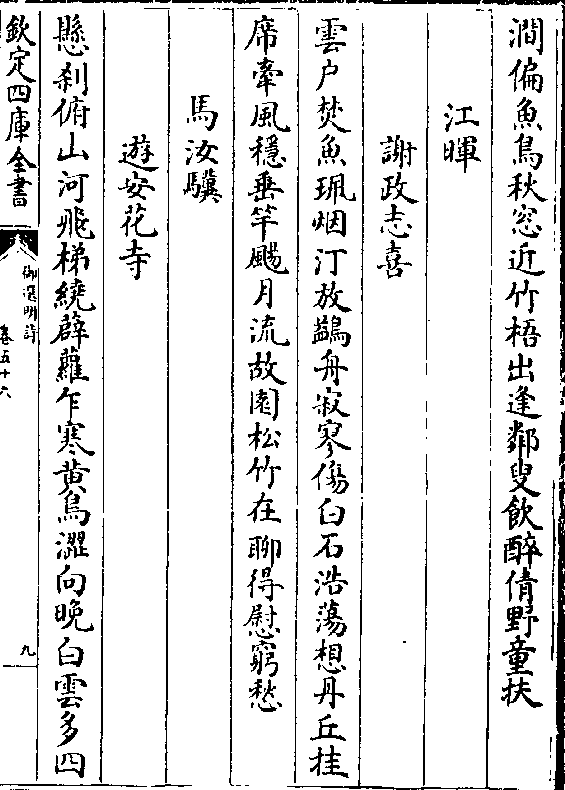 澗偏魚鳥秋窓近竹梧出逢鄰叟飲醉倩野童扶
江暉
謝政志喜
雲户焚魚珮烟汀放鷁舟寂寥傷白石浩蕩想丹丘挂
席牽風穩垂竿颺月流故園松竹在聊得慰窮愁
馬汝驥
遊安花寺
懸刹俯山河飛梯繞薜蘿乍寒黄鳥澀向晚白雲多四
欽定四庫全書
御選明詩
卷五十六
九